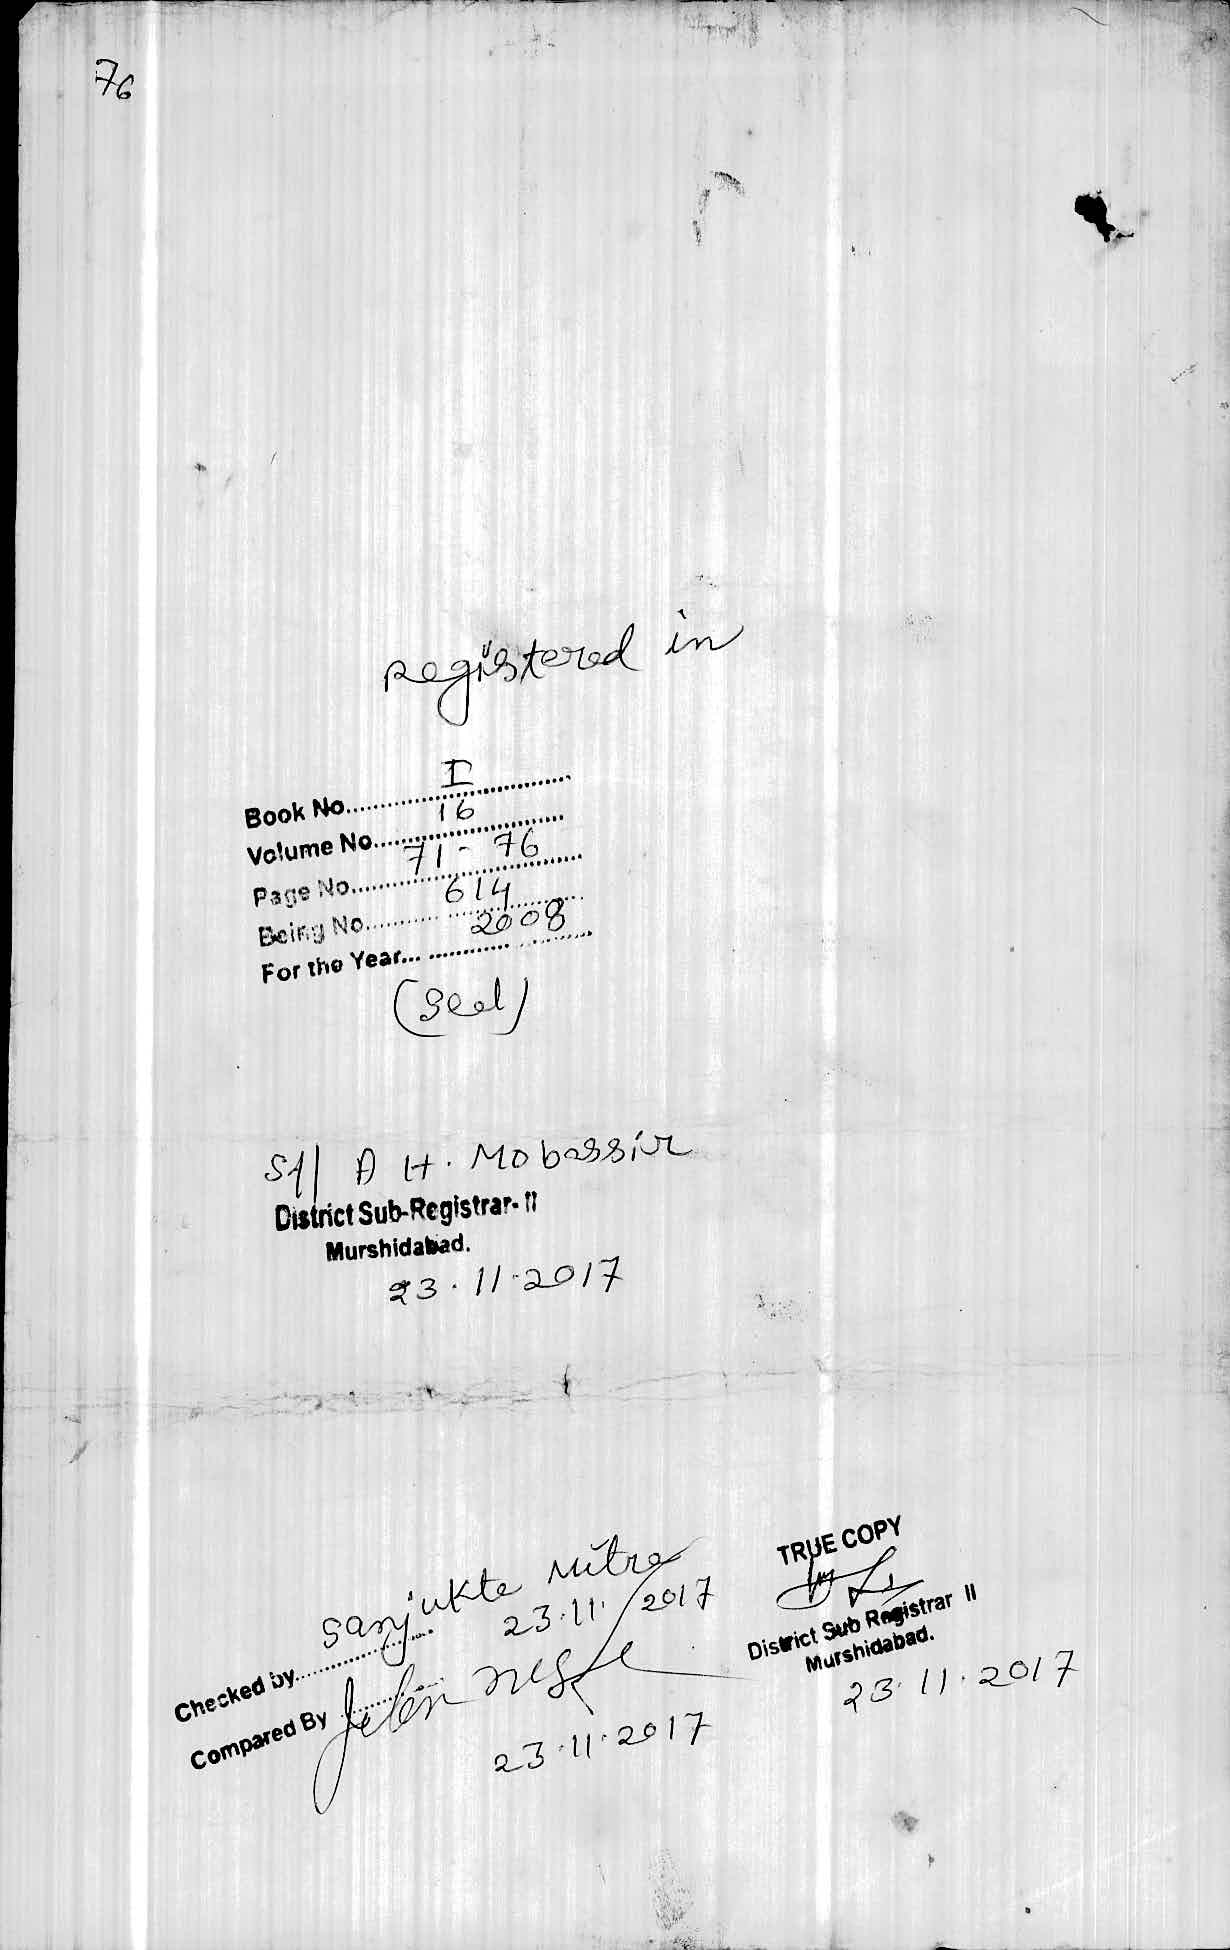 76
registered in
Book No. I
Volume No. 16
Page No. 71 - 76
Being No. 614
For the Year... 2008
(Seal)
Sd/ A H. Mobassir
District Sub-Registrar- II
Murshidabad.
23.11.2017
Checked by Sanjukta Mitra
23.11.2017
Compared By
23.11.2017
TRUE COPY
District Sub Registrar II
Murshidabad.
23.11.2017